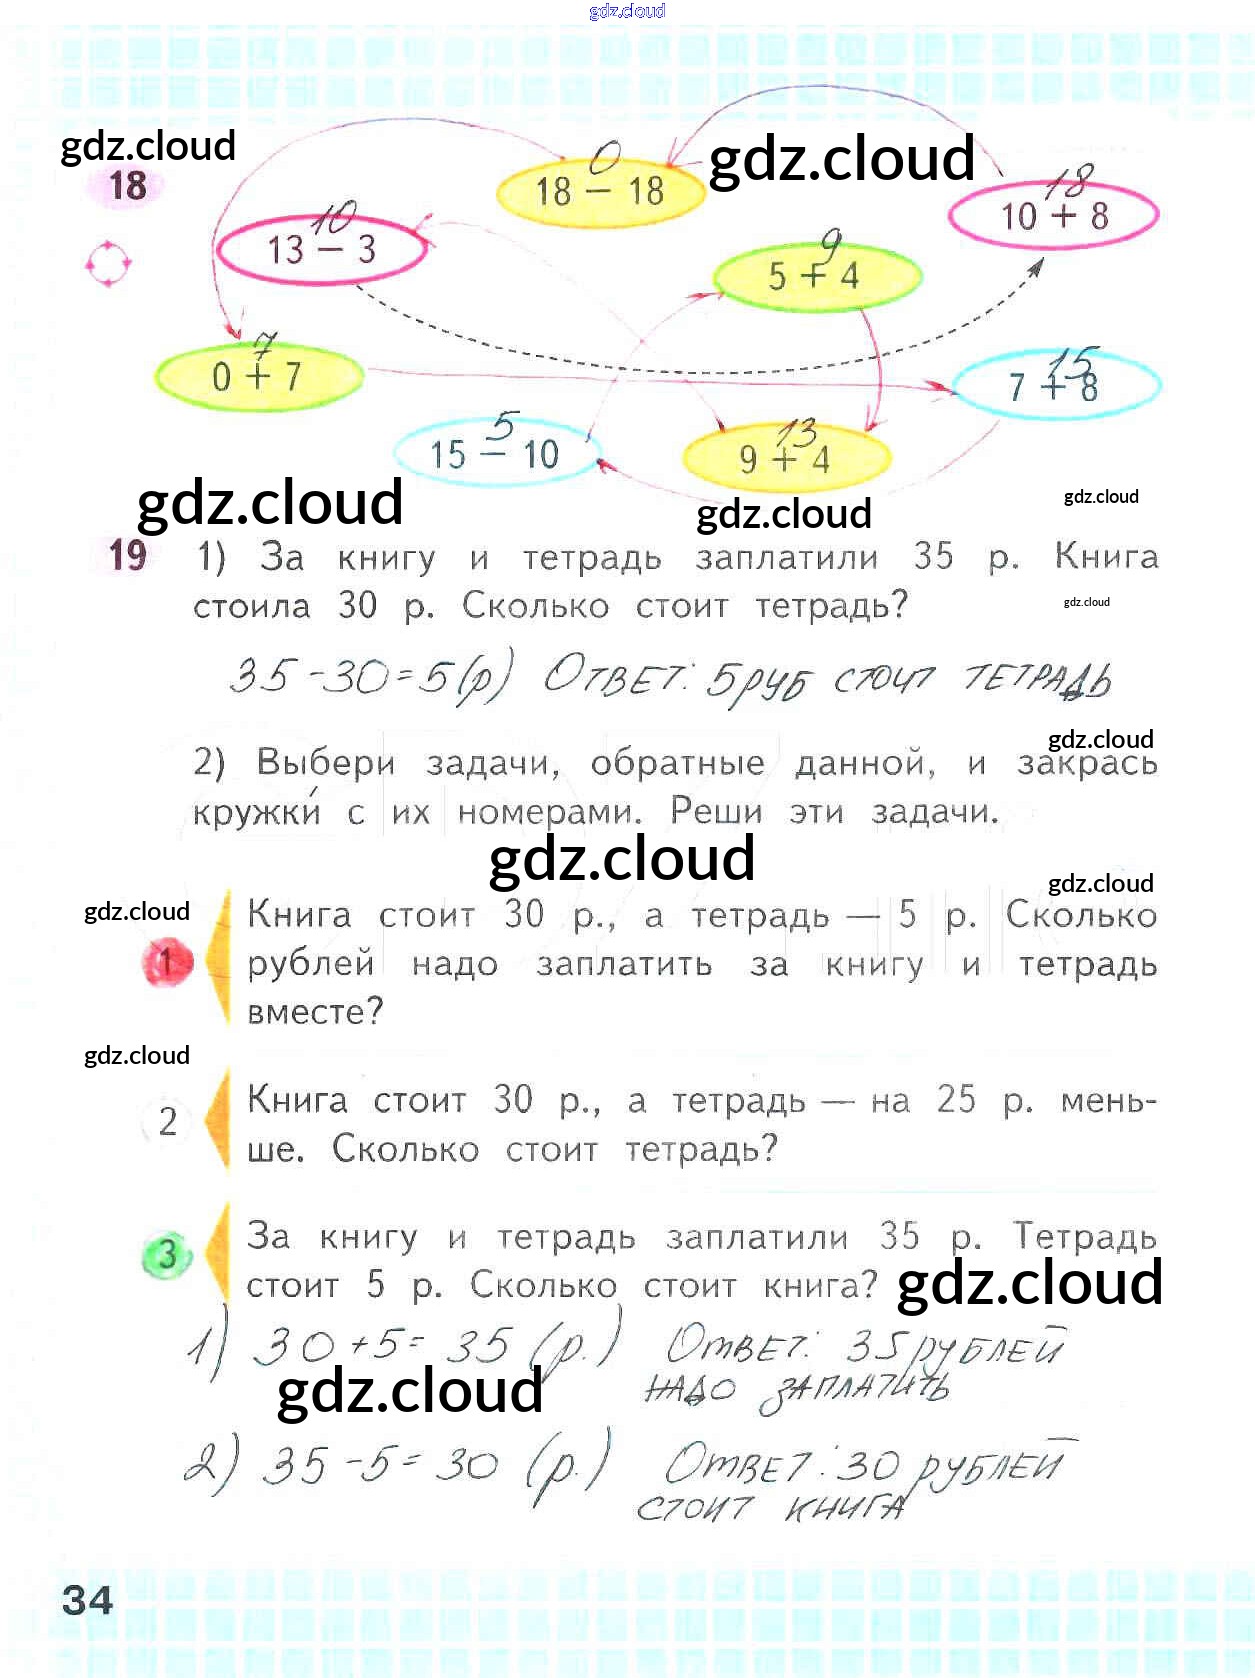 gdz.cloud
gdz.cloud
gdz.cloud
18
0
18 − 18
18
10 + 8
10
13 − 3
9
5 + 4
7
0 + 7
15
7 + 8
5
15 − 10
13
9 + 4
gdz.cloud
gdz.cloud
gdz.cloud
19 1) За книгу и тетрадь заплатили 35 р. Книга
стоила 30 р. Сколько стоит тетрадь?
gdz.cloud
35-30=5(р) Ответ: 5руб стоит тетрадь
gdz.cloud
2) Выбери задачи, обратные данной, и закрась
кружки́ с их номерами. Реши эти задачи.
gdz.cloud
gdz.cloud
gdz.cloud
Книга стоит 30 р., а тетрадь — 5 р. Сколько
1 рублей надо заплатить за книгу и тетрадь
вместе?
gdz.cloud
Книга стоит 30 р., а тетрадь — на 25 р. мень-
2 ше. Сколько стоит тетрадь?
За книгу и тетрадь заплатили 35 р. Тетрадь
3 стоит 5 р. Сколько стоит книга?
gdz.cloud
1) 30+5= 35 (р.) Ответ: 35 рублей
надо заплатить
gdz.cloud
2) 35-5= 30 (р.) Ответ: 30 рублей
стоит книга
34